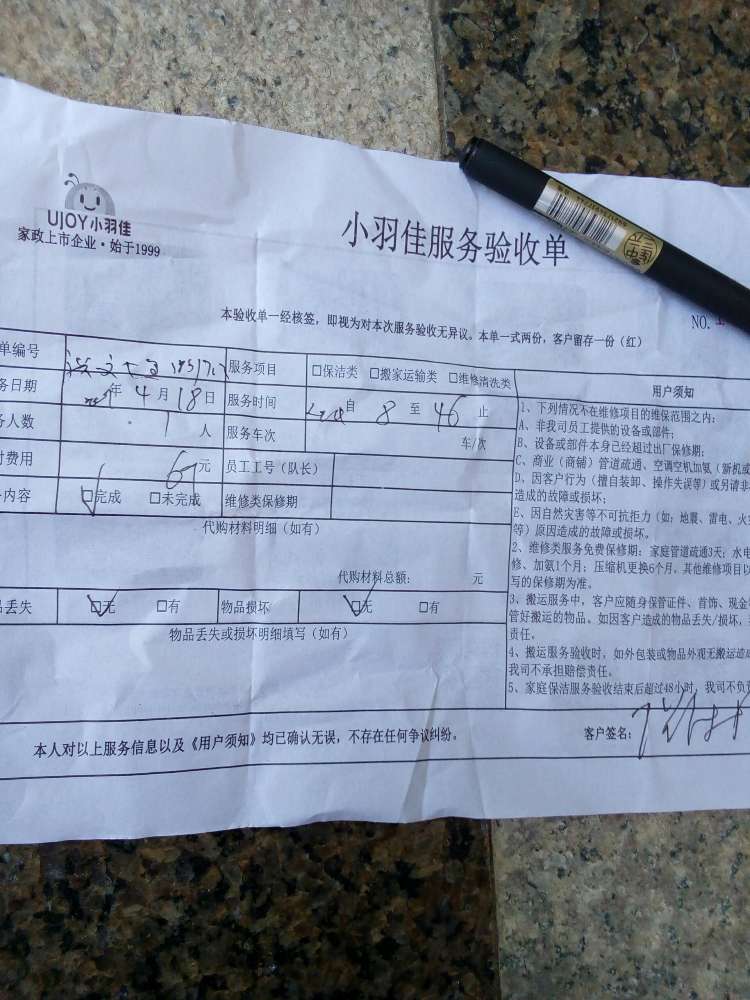 UJOY小羽佳
家政上市企业·始于1999
小羽佳服务验收单
本验收单一经核签，即视为对本次服务验收无异议。本单一式两份，客户留存一份（红）
NO.
单编号
服务项目 □保洁类 □搬家运输类 □维修清洗类
用户须知
务日期 年 4 月 18 日 服务时间 自 8 至 46 止
务人数 1 人 服务车次 车/次
付费用 元 员工工号（队长）
内容 □完成 □未完成 维修类保修期
代购材料明细（如有）
代购材料总额： 元
品丢失 □无 □有 物品损坏 □无 □有
物品丢失或损坏明细填写（如有）
1、下列情况不在维修项目的维保范围之内：
A、非我司员工提供的设备或部件；
B、设备或部件本身已经超过出厂保修期；
C、商业（商铺）管道疏通、空调空机加氨（新机或
D、因客户行为（擅自装卸、操作失误等）或另请非
造成的故障或损坏；
E、因自然灾害等不可抗拒力（如：地震、雷电、火
等）原因造成的故障或损坏。
2、维修类服务免费保修期：家庭管道疏通3天；水电
修、加氨1个月；压缩机更换6个月，其他维修项目以
写的保修期为准。
3、搬运服务中，客户应随身保管证件、首饰、现金
管好搬运的物品。如因客户造成的物品丢失/损坏，
责任。
4、搬运服务验收时，如外包装或物品外观无搬运造成
我司不承担赔偿责任。
5、家庭保洁服务验收结束后超过48小时，我司不负
本人对以上服务信息以及《用户须知》均已确认无误，不存在任何争议纠纷。
客户签名：